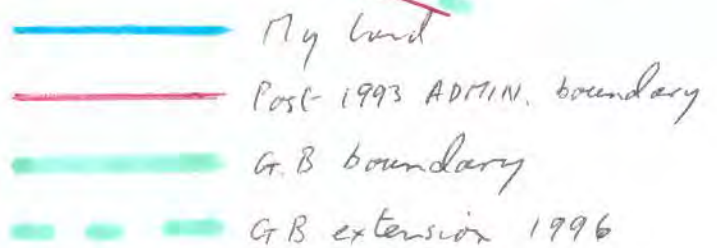 My land
Post-1993 ADMIN. boundary
G.B boundary
GB extension 1996